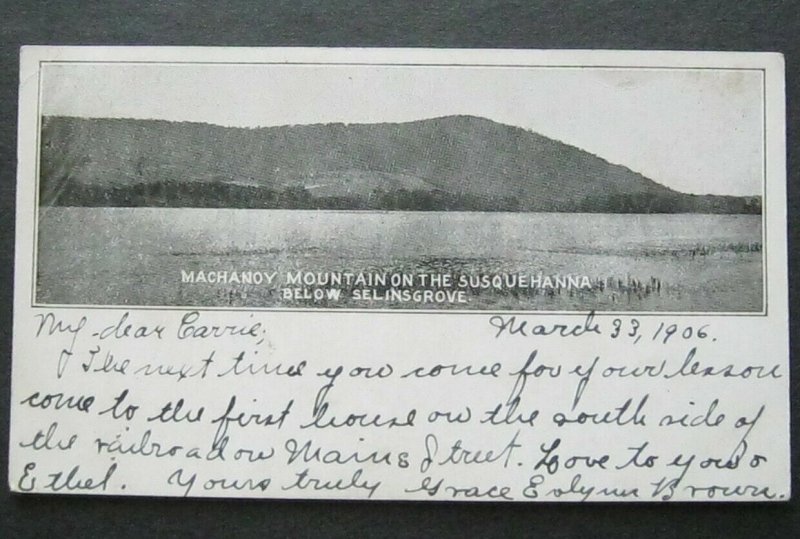 MACHANOY MOUNTAIN ON THE SUSQUEHANNA
BELOW SELINSGROVE.
My dear Carrie, March 33, 1906.
The next time you come for your lesson
come to the first house on the south side of
the railroad on Main Street. Love to you &
Ethel. Yours truly Grace Evlynn Brown.